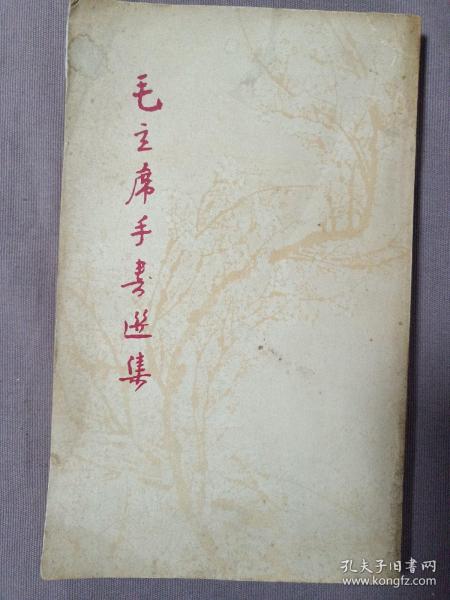 毛主席手书選集
孔夫子旧书网
www.kongfz.com